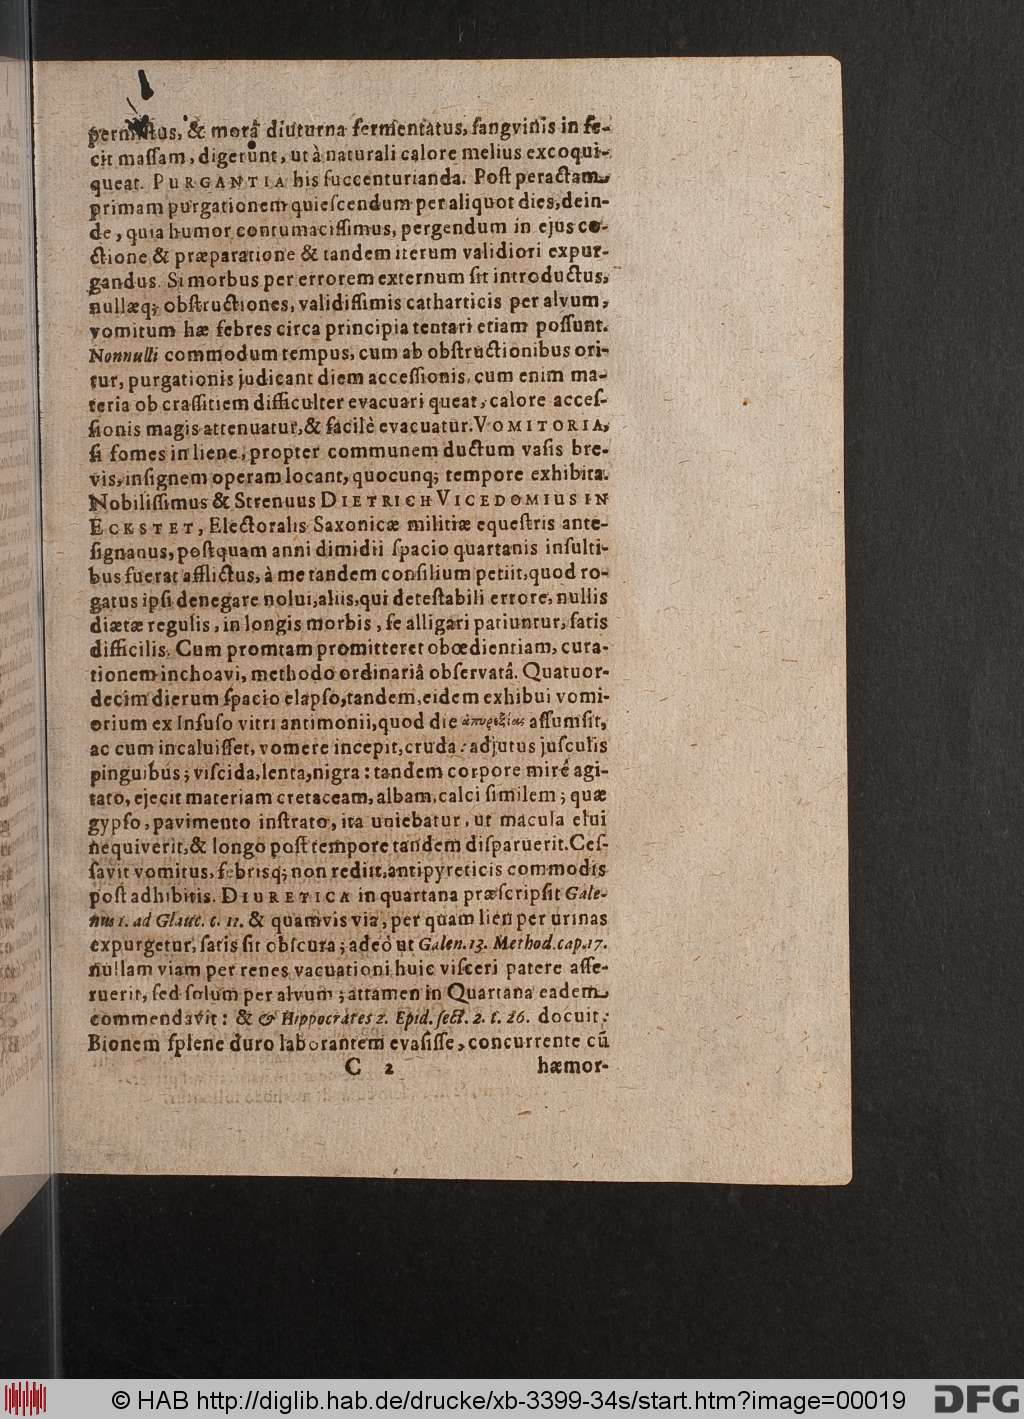 permistus, & morâ diuturna fermentatus, ſangvinis in fe-
cit maſſam, digerunt, ut à naturali calore melius excoqui-
queat. PURGANTIA his ſuccenturianda. Poſt peractam
primam purgationem quieſcendum per aliquot dies, dein-
de, quia humor contumaciſſimus, pergendum in ejus co-
ctione & præparatione & tandem iterum validiori expur-
gandus. Si morbus per errorem externum ſit introductus,
nullæq; obſtructiones, validiſſimis catharticis per alvum,
vomitum hæ febres circa principia tentari etiam poſſunt.
Nonnulli commodum tempus, cum ab obſtructionibus ori-
tur, purgationis judicant diem acceſſionis, cum enim ma-
teria ob craſſitiem difficulter evacuari queat, calore acceſ-
ſionis magis attenuatur, & facilè evacuatur. VOMITORIA,
ſi fomes in liene, propter communem ductum vaſis bre-
vis, inſignem operam locant, quocunq; tempore exhibita.
Nobiliſſimus & Strenuus DIETRICH VICEDOMIUS IN
ECKSTET, Electoralis Saxonicæ militiæ equeſtris ante-
ſignanus, poſtquam anni dimidii ſpacio quartanis inſulti-
bus fuerat afflictus, à me tandem conſilium petiit, quod ro-
gatus ipſi denegare nolui, aliis, qui deteſtabili errore, nullis
diætæ regulis, in longis morbis, ſe alligari patiuntur, ſatis
difficilis. Cum promtam promitteret obœdientiam, cura-
tionem inchoavi, methodo ordinariâ obſervatâ. Quatuor-
decim dierum ſpacio elapſo, tandem, eidem exhibui vomi-
orium ex Infuſo vitri antimonii, quod die ἀπυρεξίας aſſumſit,
ac cum incaluiſſet, vomere incepit, cruda: adjutus juſculis
pinguibus; viſcida, lenta, nigra: tandem corpore mirè agi-
tato, ejecit materiam cretaceam, albam, calci ſimilem; quæ
gypſo, pavimento inſtrato, ita uniebatur, ut macula elui
nequiverit, & longo poſt tempore tandem diſparuerit. Ceſ-
ſavit vomitus, febrisq; non rediit, antipyreticis commodis
poſt adhibitis. DIURETICA in quartana præſcripſit Gale-
nus 1. ad Glauc. c. 11. & quamvis via, per quam lien per urinas
expurgetur, ſatis ſit obſcura; adeò ut Galen. 13. Method. cap. 17.
nullam viam per renes vacuationi huic viſceri patere aſſe-
ruerit, ſed ſolum per alvum; attamen in Quartana eadem
commendavit: & & Hippocrates 2. Epid. ſect. 2. t. 26. docuit:
Bionem ſplene duro laborantem evaſiſſe, concurrente cū
C 2 hæmor-
© HAB http://diglib.hab.de/drucke/xb-3399-34s/start.htm?image=00019 DFG